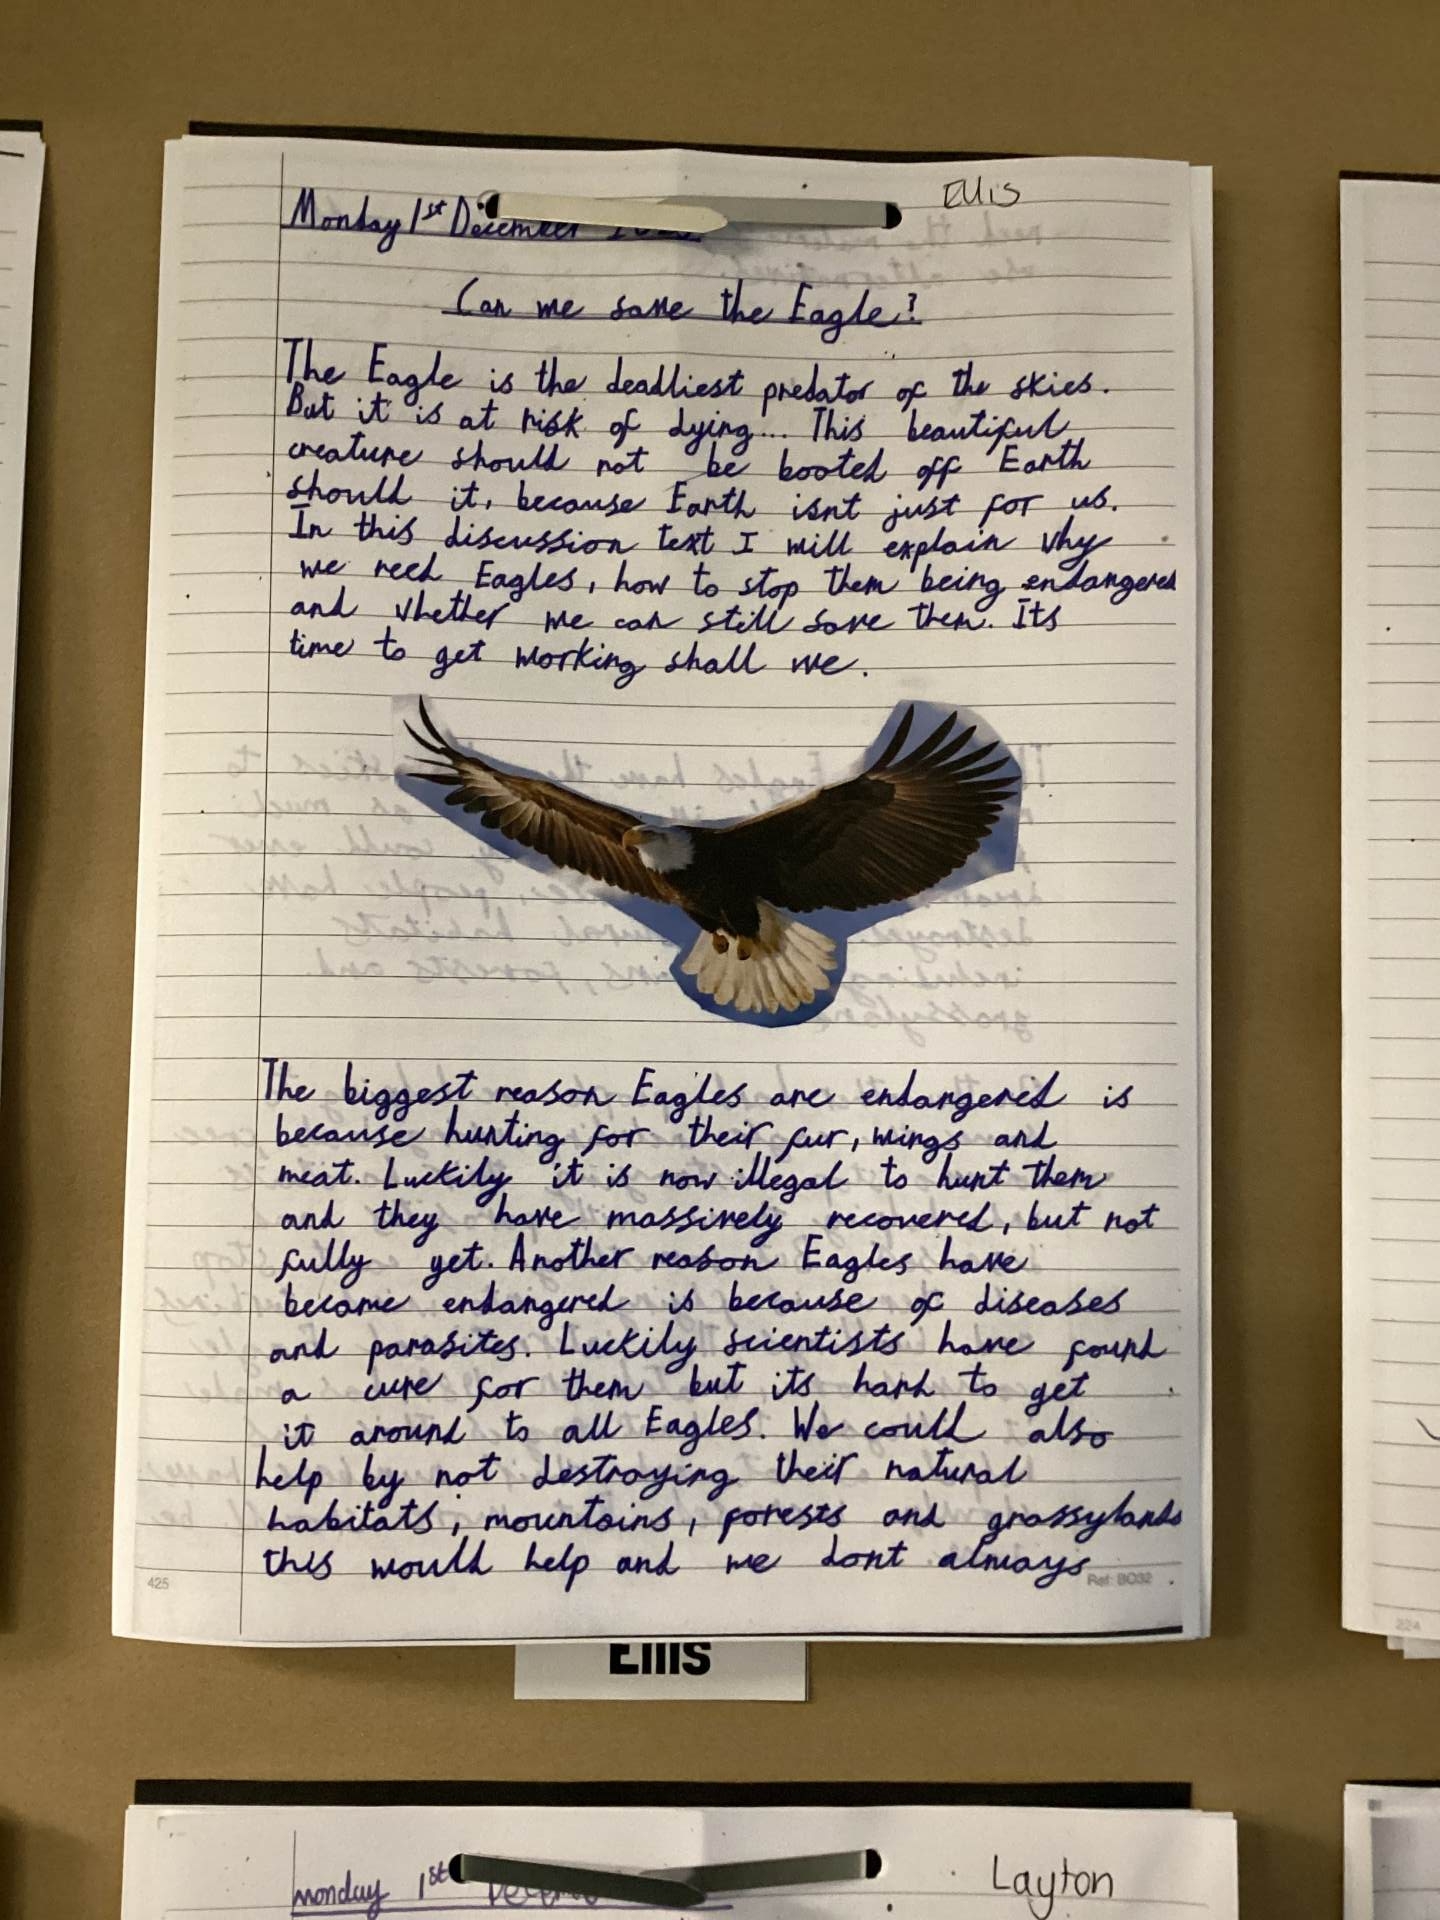 Ellis
Monday 1st December
Can we save the Eagle?
The Eagle is the deadliest predator of the skies.
But it is at risk of dying... This beautiful
creature should not be booted off Earth
should it, because Earth isnt just for us.
In this discussion text I will explain why
we need Eagles, how to stop them being endangered
and whether we can still save them. Its
time to get working shall we.
The biggest reason Eagles are endangered is
because hunting for their fur, wings and
meat. Luckily it is now illegal to hunt them
and they have massively recovered, but not
fully yet. Another reason Eagles have
become endangered is because of diseases
and parasites. Luckily scientists have found
a cure for them but its hard to get
it around to all Eagles. We could also
help by not destroying their natural
habitats, mountains, forests and grassylands
this would help and we dont always
425
Ref: BO32
Ellis
224
monday 1st
Layton